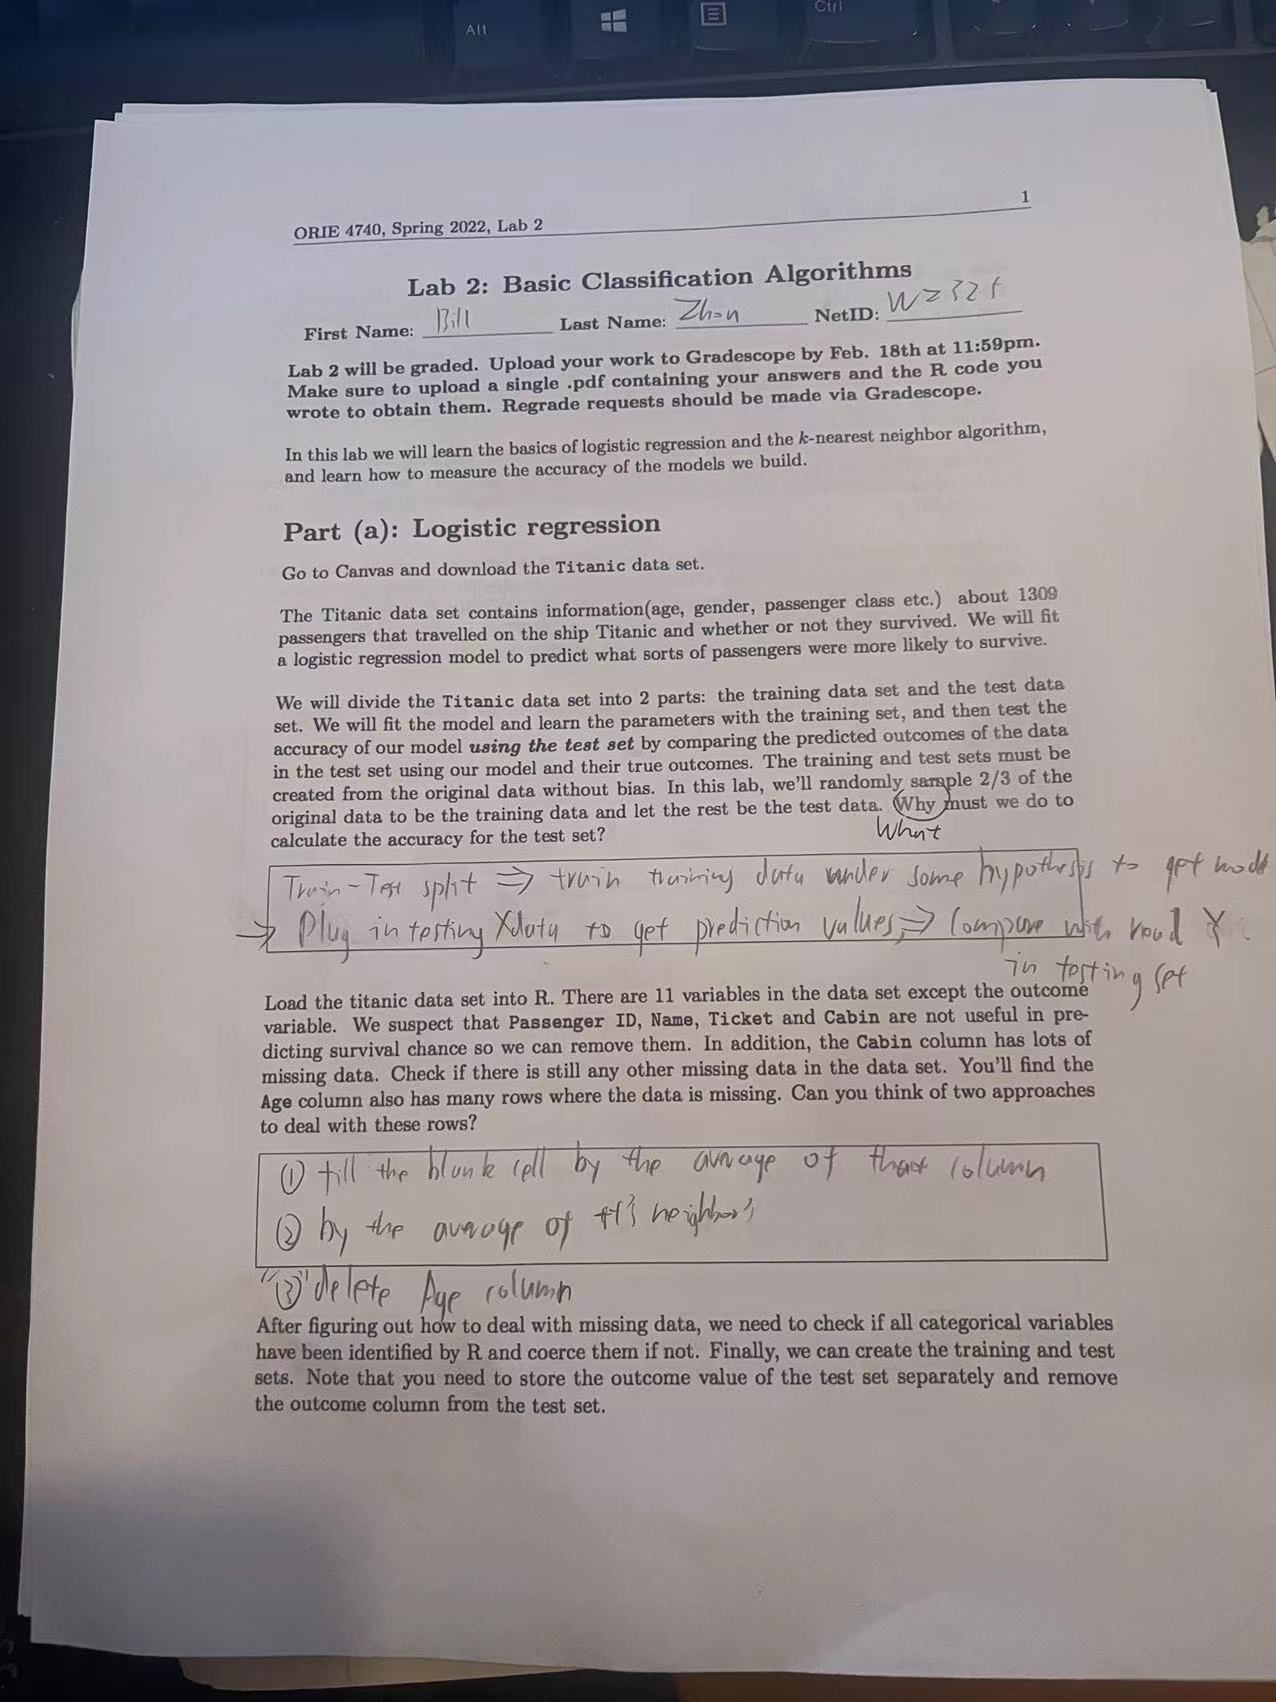 Alt
Ctrl
ORIE 4740, Spring 2022, Lab 2
1
Lab 2: Basic Classification Algorithms
First Name: Bill Last Name: NetID:
Lab 2 will be graded. Upload your work to Gradescope by Feb. 18th at 11:59pm.
Make sure to upload a single .pdf containing your answers and the R code you
wrote to obtain them. Regrade requests should be made via Gradescope.
In this lab we will learn the basics of logistic regression and the k-nearest neighbor algorithm,
and learn how to measure the accuracy of the models we build.
Part (a): Logistic regression
Go to Canvas and download the Titanic data set.
The Titanic data set contains information(age, gender, passenger class etc.) about 1309
passengers that travelled on the ship Titanic and whether or not they survived. We will fit
a logistic regression model to predict what sorts of passengers were more likely to survive.
We will divide the Titanic data set into 2 parts: the training data set and the test data
set. We will fit the model and learn the parameters with the training set, and then test the
accuracy of our model using the test set by comparing the predicted outcomes of the data
in the test set using our model and their true outcomes. The training and test sets must be
created from the original data without bias. In this lab, we'll randomly sample 2/3 of the
original data to be the training data and let the rest be the test data. Why must we do to
What
calculate the accuracy for the test set?
Train-Test split ⇒ train training data under some hypothesis to get
→ Plug in testing Xdata to get prediction values, ⇒ Compare with Y
in testing set
Load the titanic data set into R. There are 11 variables in the data set except the outcome
variable. We suspect that Passenger ID, Name, Ticket and Cabin are not useful in pre-
dicting survival chance so we can remove them. In addition, the Cabin column has lots of
missing data. Check if there is still any other missing data in the data set. You'll find the
Age column also has many rows where the data is missing. Can you think of two approaches
to deal with these rows?
① fill the blank cell by the average of that column
② by the average of it's neighbors
"③" delete Age column
After figuring out how to deal with missing data, we need to check if all categorical variables
have been identified by R and coerce them if not. Finally, we can create the training and test
sets. Note that you need to store the outcome value of the test set separately and remove
the outcome column from the test set.